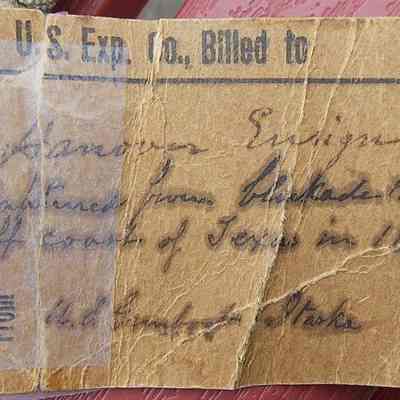 U.S. Exp. Co., Billed to
Hanover Ensign
captured from blockade
off coast of Texas in 18
From
U.S. Gunboat Itaska